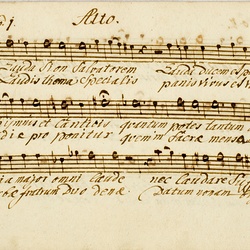 Alto.
Lauda Sion Salvatorem Lauda ducem et
Laudis thema Specialis panis vivus et
hymnis et Canticis quantum potes tantum
proponitur quem in Sacrae mensae
major omni laude nec laudare
fratrum duodenae Datum non